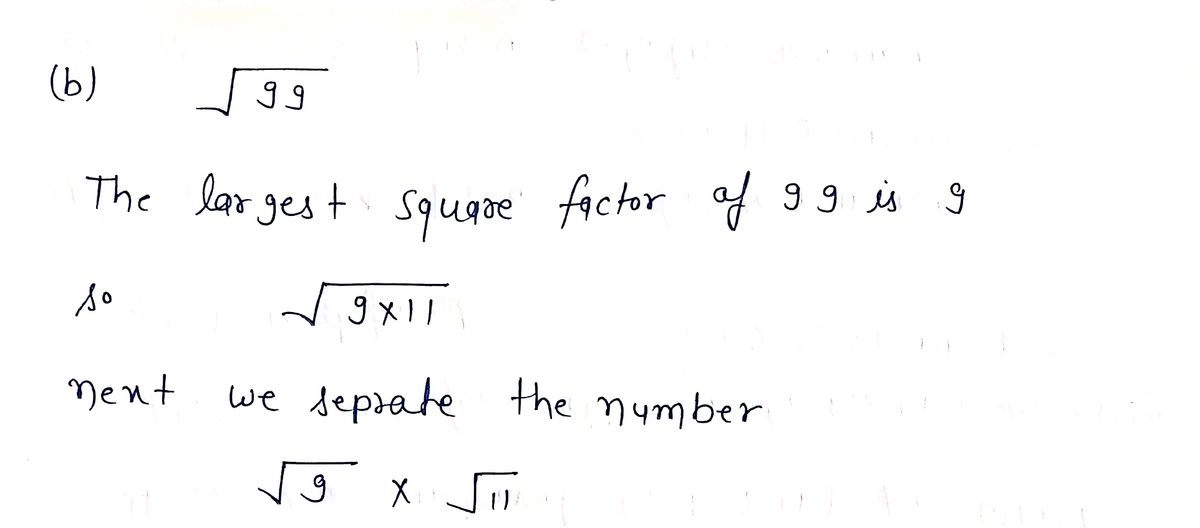 (b) √99
The largest square factor of 99 is 9
so √9×11
next we seprate the number
√9 × √11